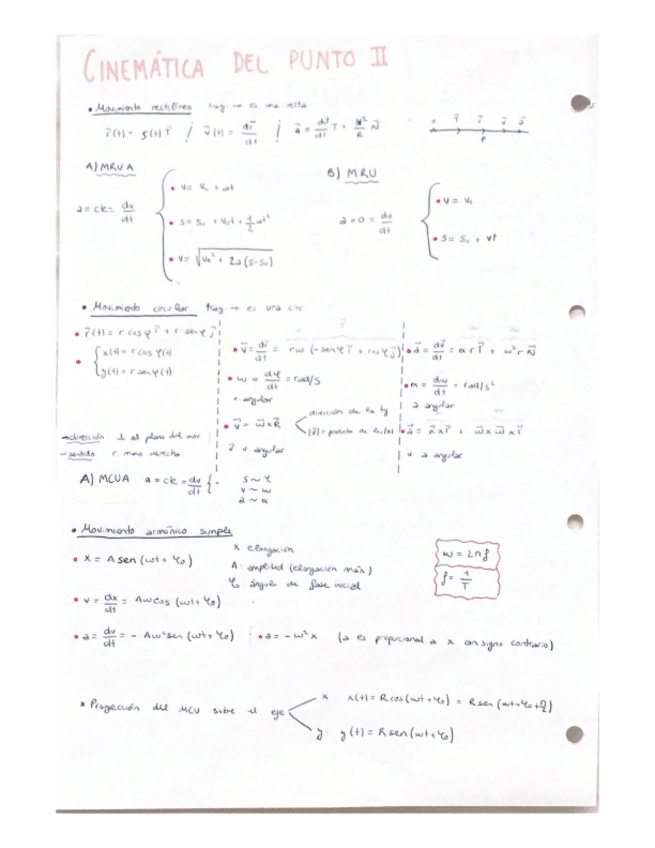 CINEMÁTICA DEL PUNTO II
• Movimiento rectilíneo tray → es una recta
r⃗(t) = s(t) T⃗ / v⃗(t) = dr⃗/dt / a⃗ = dv/dt T + v²/R N⃗
A) MRUA
a = cte = dv/dt
• v = v₀ + at
• s = s₀ + v₀t + 1/2 at²
• v = √(v₀² + 2a(s-s₀))
B) MRU
a = 0 = dv/dt
• v = v₀
• s = s₀ + vt
• Movimiento circular tray → es una circ.
• r⃗(t) = r cos φ i⃗ + r sen φ j⃗
• { x(t) = r cos φ(t)
y(t) = r sen φ(t)
→ dirección ⊥ al plano del mov
→ sentido r. mano derecha
• v⃗ = dr⃗/dt = rω (-sen φ i⃗ + cos φ j⃗)
• ω = dφ/dt = rad/s
v angular
• v⃗ = ω⃗ x R⃗
dirección de la tg
v⃗ v. angular
• a⃗ = dv⃗/dt = α r T⃗ + ω² r N⃗
• α = dω/dt = rad/s²
a angular
• a⃗ = α⃗ x r⃗ + ω⃗ x ω⃗ x r⃗
v a angular
A) MCUA a = cte = dv/dt {
s ~ φ
v ~ ω
a ~ α
• Movimiento armónico simple
• x = A sen (ωt + φ₀)
x elongación
A: amplitud (elongación máx.)
φ₀ ángulo de fase inicial
ω = 2πf
f = 1/T
• v = dx/dt = Aω cos (ωt + φ₀)
• a = dv/dt = - Aω² sen (ωt + φ₀) • a = - ω² x (a es proporcional a x con signo contrario)
* Proyección del MCU sobre el eje
x x(t) = R cos (ωt + φ₀) = R sen (ωt + φ₀ + π/2)
y y(t) = R sen (ωt + φ₀)